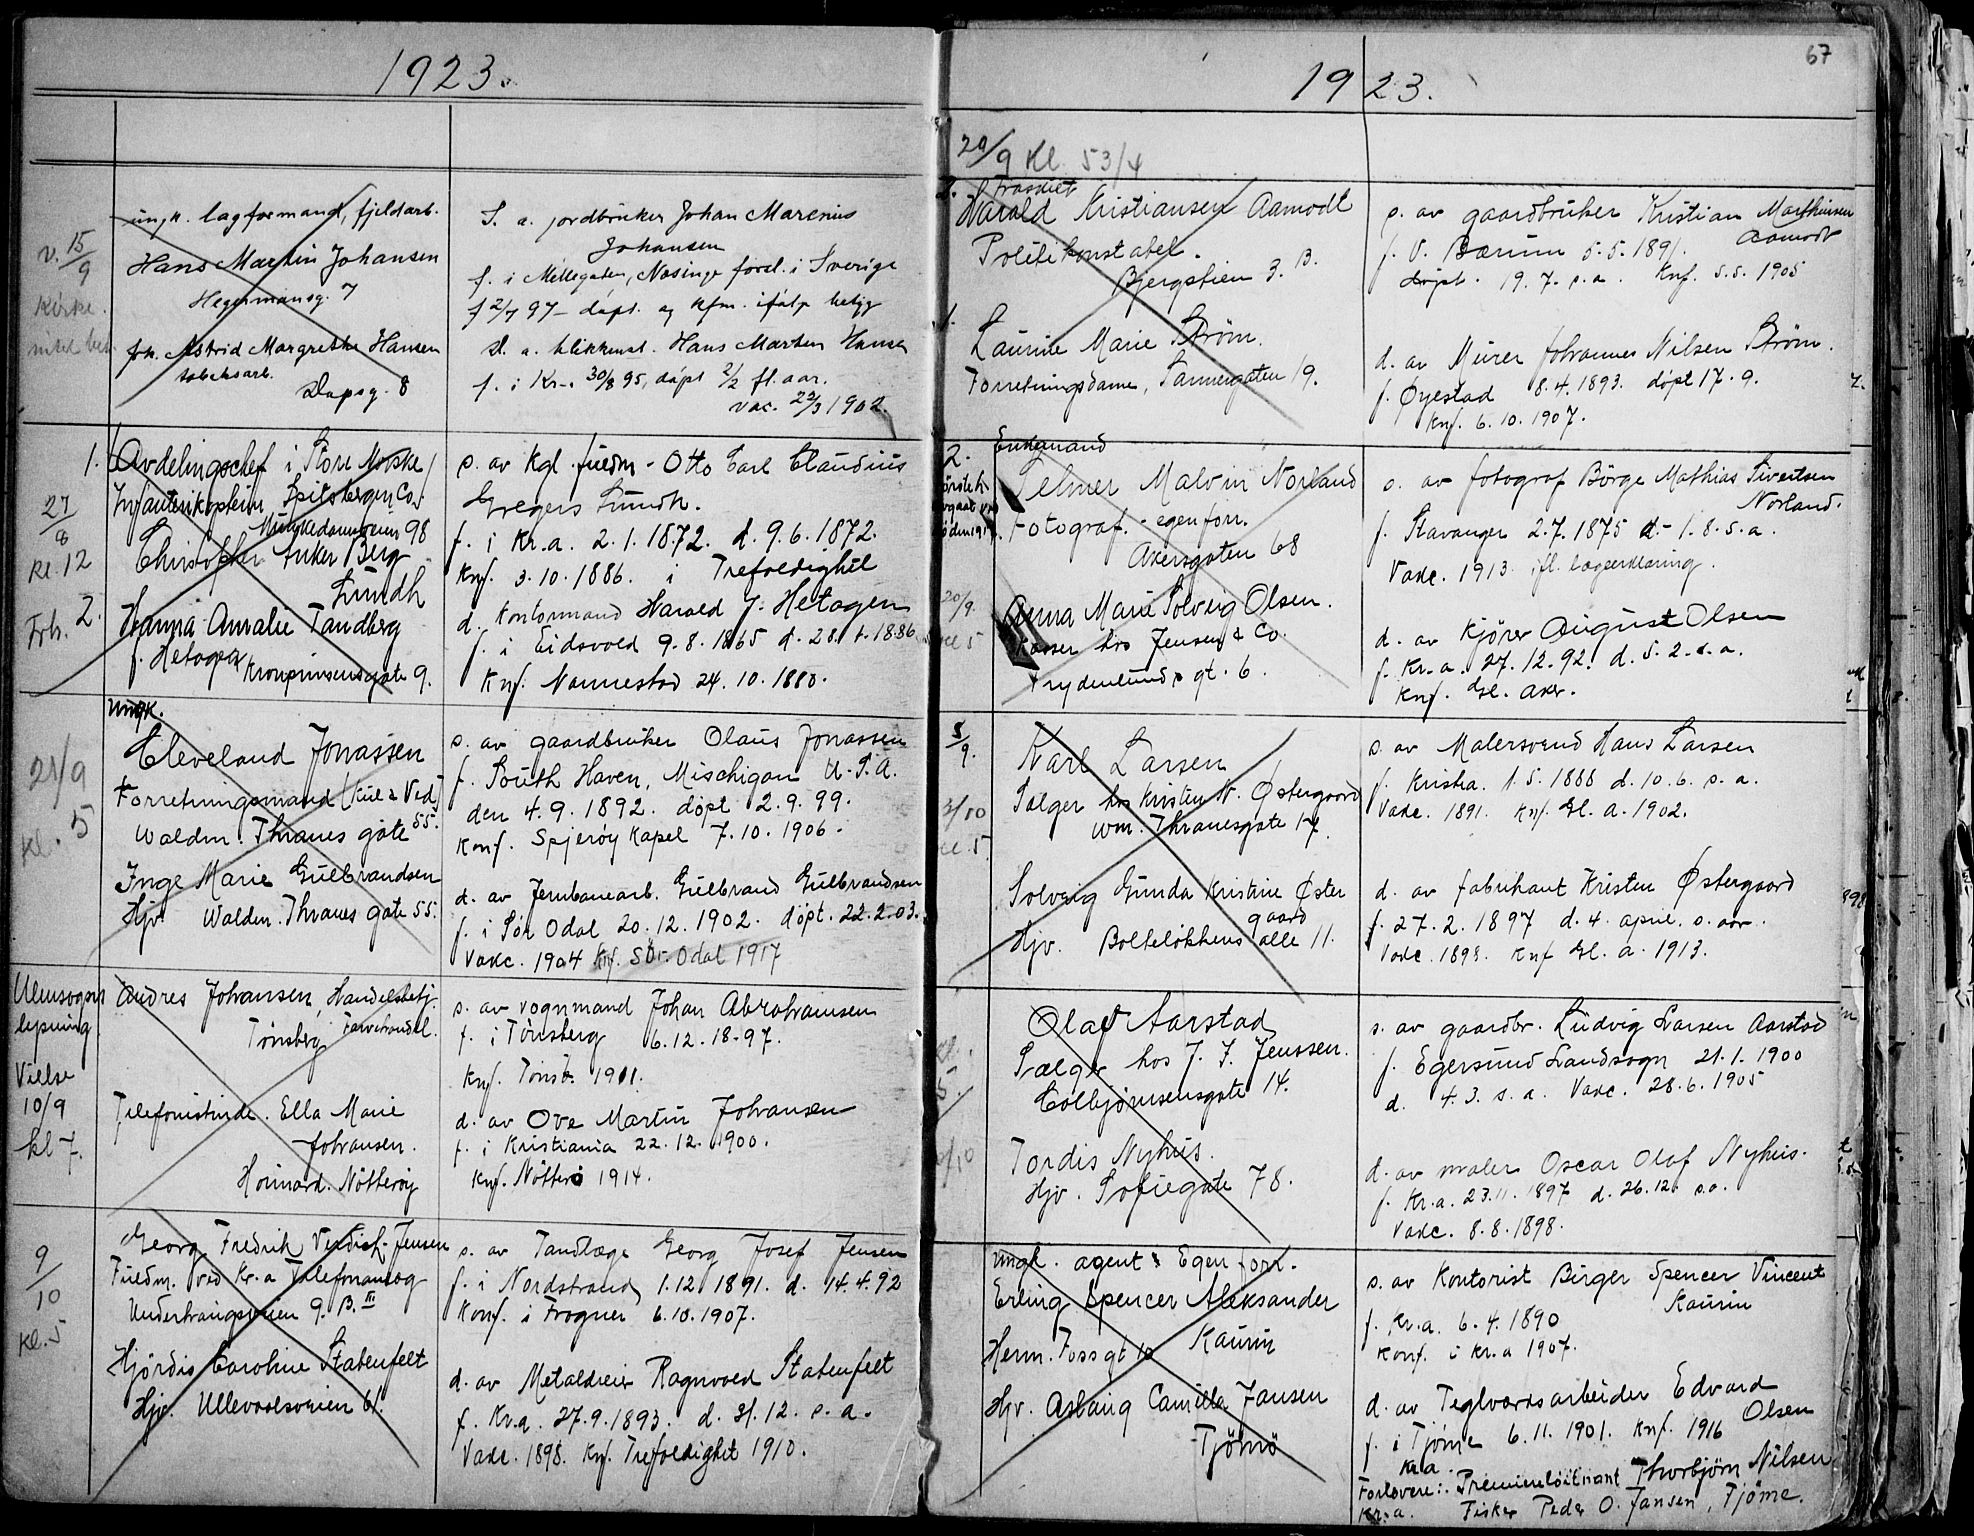 1923.
v. 15/9
Kirke.
ungk. lagformand, fjeldarb.
Hans Martin Johansen
Hegermannsg. 7
frk. Astrid Margrethe Hansen
tobaksarb.
Dapsg. 8
S. a. jordbruker Johan Marenius
Johansen
f. i Nosinge forsl. i Sverige
f 2/7 97 – døpt. og kfm. ifølge
d. a. blikkensl. Hans Marten Hansen
f. i Kr. 30/8 95, døpt 2/2 fl. aar.
vac. 23/3 1902.
1.
27/8
Kl. 12
Frh. 2.
Avdelingschef i Store Norske
Infanterikaptein Spitsbergen Co.
Munkedamsveien 98
Christopher Anker Berg
Lundh
Hanna Amalie Tandberg
f. Hetagen Kronprinsensgate 9.
s. av Kgl. fuldm. Otto Carl Claudius
Gregers Lundh.
f. i Kr.a. 2.1.1872. d. 9.6.1872.
Knf. 3.10.1886. i Trefoldighet
d. Kontormand Harald J. Hetagen
f. i Eidsvold 9.8.1865 d. 28. 1886.
Knf. Nannestad 24.10.1880.
21/9
Kl. 5
Ungk.
Cleveland Jonassen
Forretningsmand (Kul & Ved)
Waldm. Thranes gate 55.
Inge Marie Gulbrandsen
Hjv. Waldm. Thranes gate 55.
s. av gaardbruker Olaus Jonassen
f. South Haven, Mischigan U.S.A.
den 4.9.1892. døpt 2.9.99.
Konf. Spjerøy Kapel 7.10.1906.
d. av Jernbanearb. Gulbrand Gulbrandsen
f. i Sør Odal 20.12.1902. døpt. 22.2.03.
Vakc. 1904 Knf. Sör. Odal 1917
Utensogns
lysning.
Vielse
10/9
kl 7.
Andres Johansen, Handelsbetj.
Tønsberg Farvehandel.
Telefonistinde. Ella Marie
Johansen.
Nötterøy
s. av vognmand Johan Abrahamsen
f. i Tönsberg 6.12.18-97.
Knf. Tönsb. 1911.
d. av Ove Martin Johansen
f. i Kristiania 22.12.1900.
Knf. Nötterö 1914.
9/10
Kl. 5
Georg Fredrik Jensen
Fuldm. ved Kr.a Telefonanlæg
Underhaugsveien 9. B. III
Hjørdis Caroline Stabenfelt
Hjv. Ullevoalsveien 61.
s. av Tandlæge Georg Josef Jensen
f. i Nordstrand 1.12 1891. d. 14.4.92
Konf. i Frogner 6.10.1907.
d. av Metaldreier Ragnvald Stabenfelt
f. Kr.a. 27.9.1893. d. 31.12. s.a.
Vakc. 1898. Knf. Trefoldighet 1910.
67
1923.
20/9 Kl. 5 3/4
2. Fraskilt
Harald Kristiansen Aamodt
Politikonstabel.
Bjergstien 3. B.
1.
Laurine Marie Strøm.
Forretningsdame, Sannergaten 19.
s. av gaardbruker Kristian Marthinsen
Aamodt
f. V. Bærum 5.5.1891.
døpt. 19.7. s.a. Knf. 5.5. 1905
d. av Murer Johannes Nilsen Strøm.
f. Øyestad 8.4.1893. døpt 17.9.
Knf. 6.10.1907.
2.
20/9
Kl 5
Enkemand
Telmer Malvin Norland
Fotograf. - egen forr.
Akersgaten 68
Anna Marie Solveig Olsen.
Kasser hos Jensen & Co.
Frydenlunds gt. 6.
s. av fotograf Börge Mathias Sivertsen
Norland.
f. Stavanger 2.7.1875 d. 1.8.s.a.
Vakc. 1913. ifl. lægeerklæring.
d. av Kjører August Olsen
f. Kr.a. 27.12.92. d. 5.2.s.a.
Knf. Gl. Aker.
5/9.
3/10
Kl. 5.
Karl Larsen
Sælger hos Kristen N. Østergaard
Wm. Thranesgate 17.
Solveig Gunda Kristine Øster
gaard
Hjv. Bolteløkkens alle 11.
s. av Malersvend Hans Larsen
f. Kristia. 1.5.1888 d. 10.6. s.a.
Vakc. 1891. Knf. Gl. A. 1902.
d. av Fabrikant Kristen Østergaard
f. 27.2.1897 d. 4. april. s. aar.
Vakc. 1898. Knf Gl. a. 1913.
Kl.
5
Olaf Aarstad
Sælger hos J. J. Jenssen.
Colbjørnsensgate 14.
Tordis Nyhus.
Hjv. Sofiegate 78.
s. av gaardbr. Ludvig Larsen Aarstad
f. Egersund Landsogn 21.1.1900
d. 4.3. s.a. Vakc. 28.6.1905
d. av maler Oscar Olaf Nyhus.
f. Kr.a. 23.11.1897 d. 26.12. s.a.
Vakc. 8.8.1898.
Ungk. agent & Egen forr.
Erling Spencer Aleksander
Kaurin
Herm. Foss gt 10
Hjv. Aslaug Camilla Jansen
Tjömö
s. av Kontorist Birger Spencer Vincent
Kaurin
f. Kr.a. 6.4.1890
Konf. i Kr.a 1907.
d. av Teglverksarbeider Edvard
Olsen
f. i Tjöme 6.11.1901. Knf. 1916
Kr.a.
Forlovere: Premierløitnant Thorbjørn Nilsen
Kr.a. Fisker Peder O. Jansen, Tjöme.